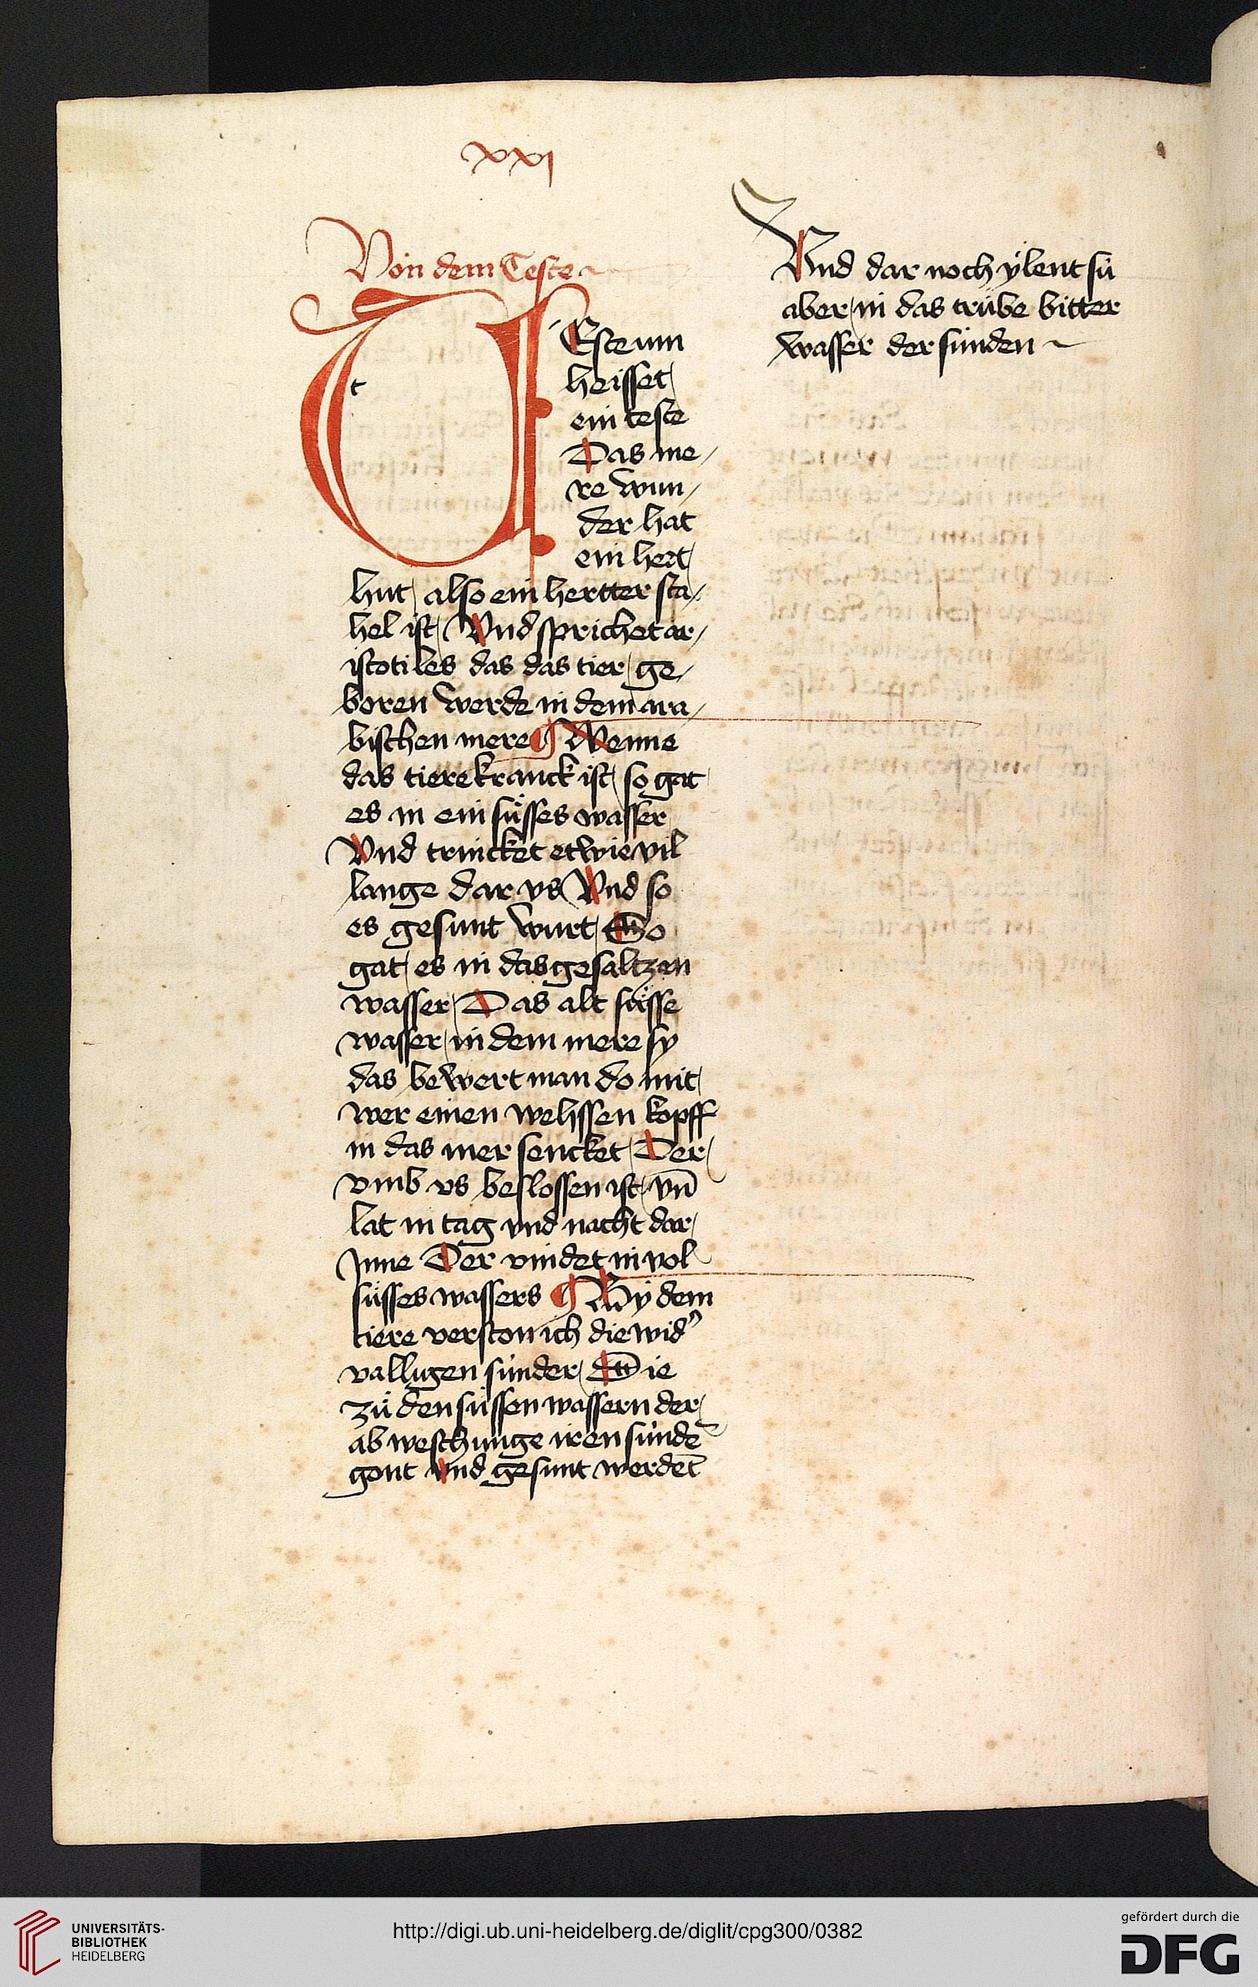 xxi
Von dem Teste
t
Esteum
heisset
ein teste
Das me/
re wun/
der hat
ein hert
hut also ein hertter sta/
hel ist Vnd sprichet ar/
istotiles das das tier ge/
boren werde in dem ara/
bischen mere ¶ Wenne
das tiere kranck ist so gat
es in ein süsses wasser
Vnd trincket etwie vil
lange dar vs Vnd so
es gesunt wurt So
gat es in das gesaltzen
wasser Das alt süsse
wasser in dem mere sy
das bewert man do mit
wer einen wehssen kopff
in das mer sencket Der
vmb vs beslossen ist vn̄
lat in tag vnd nacht dar
Jnne Der vindet in vol
süsses wassers ¶ By dem
tiere verston ich die wid'
valligen súnder Die
zü den süssen wassern der
ab weschunge iren súndē
gont vnd gesunt werdēt
Vnd dar noch ylent sü
aber in das trübe bitter
wasser der súnden
UNIVERSITÄTS-
BIBLIOTHEK
HEIDELBERG
http://digi.ub.uni-heidelberg.de/diglit/cpg300/0382
gefördert durch die
DFG